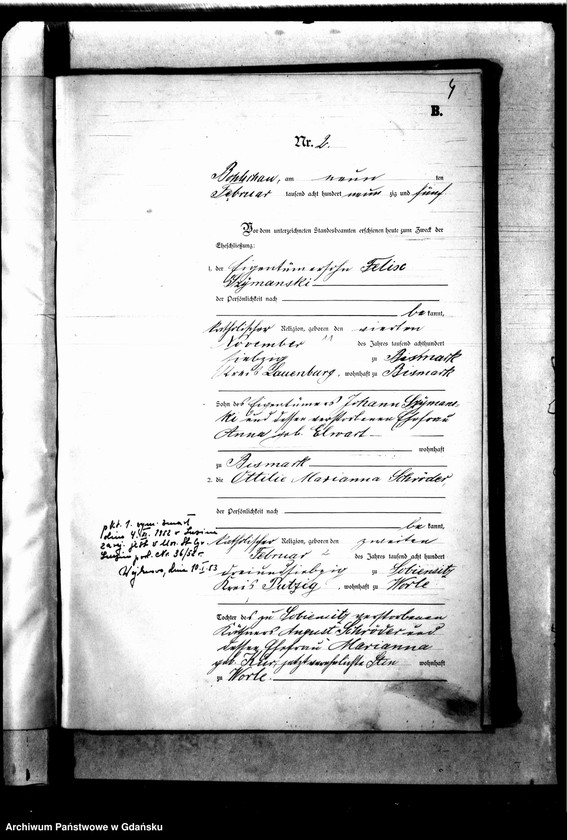 4
B.
Nr. 2.
am neun ten
Februar tausend acht hundert neun zig und fünf
Vor dem unterzeichneten Standesbeamten erschienen heute zum Zweck der
Eheschließung:
1. der Eigentümersohn Felix
Szymanski
der Persönlichkeit nach
be kannt,
katholischer Religion, geboren den vierten
November des Jahres tausend achthundert
siebzig zu Bismark
Kreis Lauenburg, wohnhaft zu Bismark
Sohn des Eigentümers Johann Szymans
ki und dessen verstorbenen Ehefrau
Anna geb. Elwart
wohnhaft
zu Bismark
2. die Ottilie Marianna Schröder
der Persönlichkeit nach
be kannt,
katholischer Religion, geboren den zweiten
Februar des Jahres tausend acht hundert
dreiundsiebzig zu Lobiensitz
Kreis Putzig, wohnhaft zu Worle
Tochter des zu Lobiensitz verstorbenen
August Schröder und
dessen Ehefrau Marianna
geb. jetzt verehelichte wohnhaft
zu Worle.
pkt. 1. zmarł
dnia 1952 w Luzinie
jest w
Luzino Nr 36/52 r
dnia 10 I 53
Archiwum Państwowe w Gdańsku